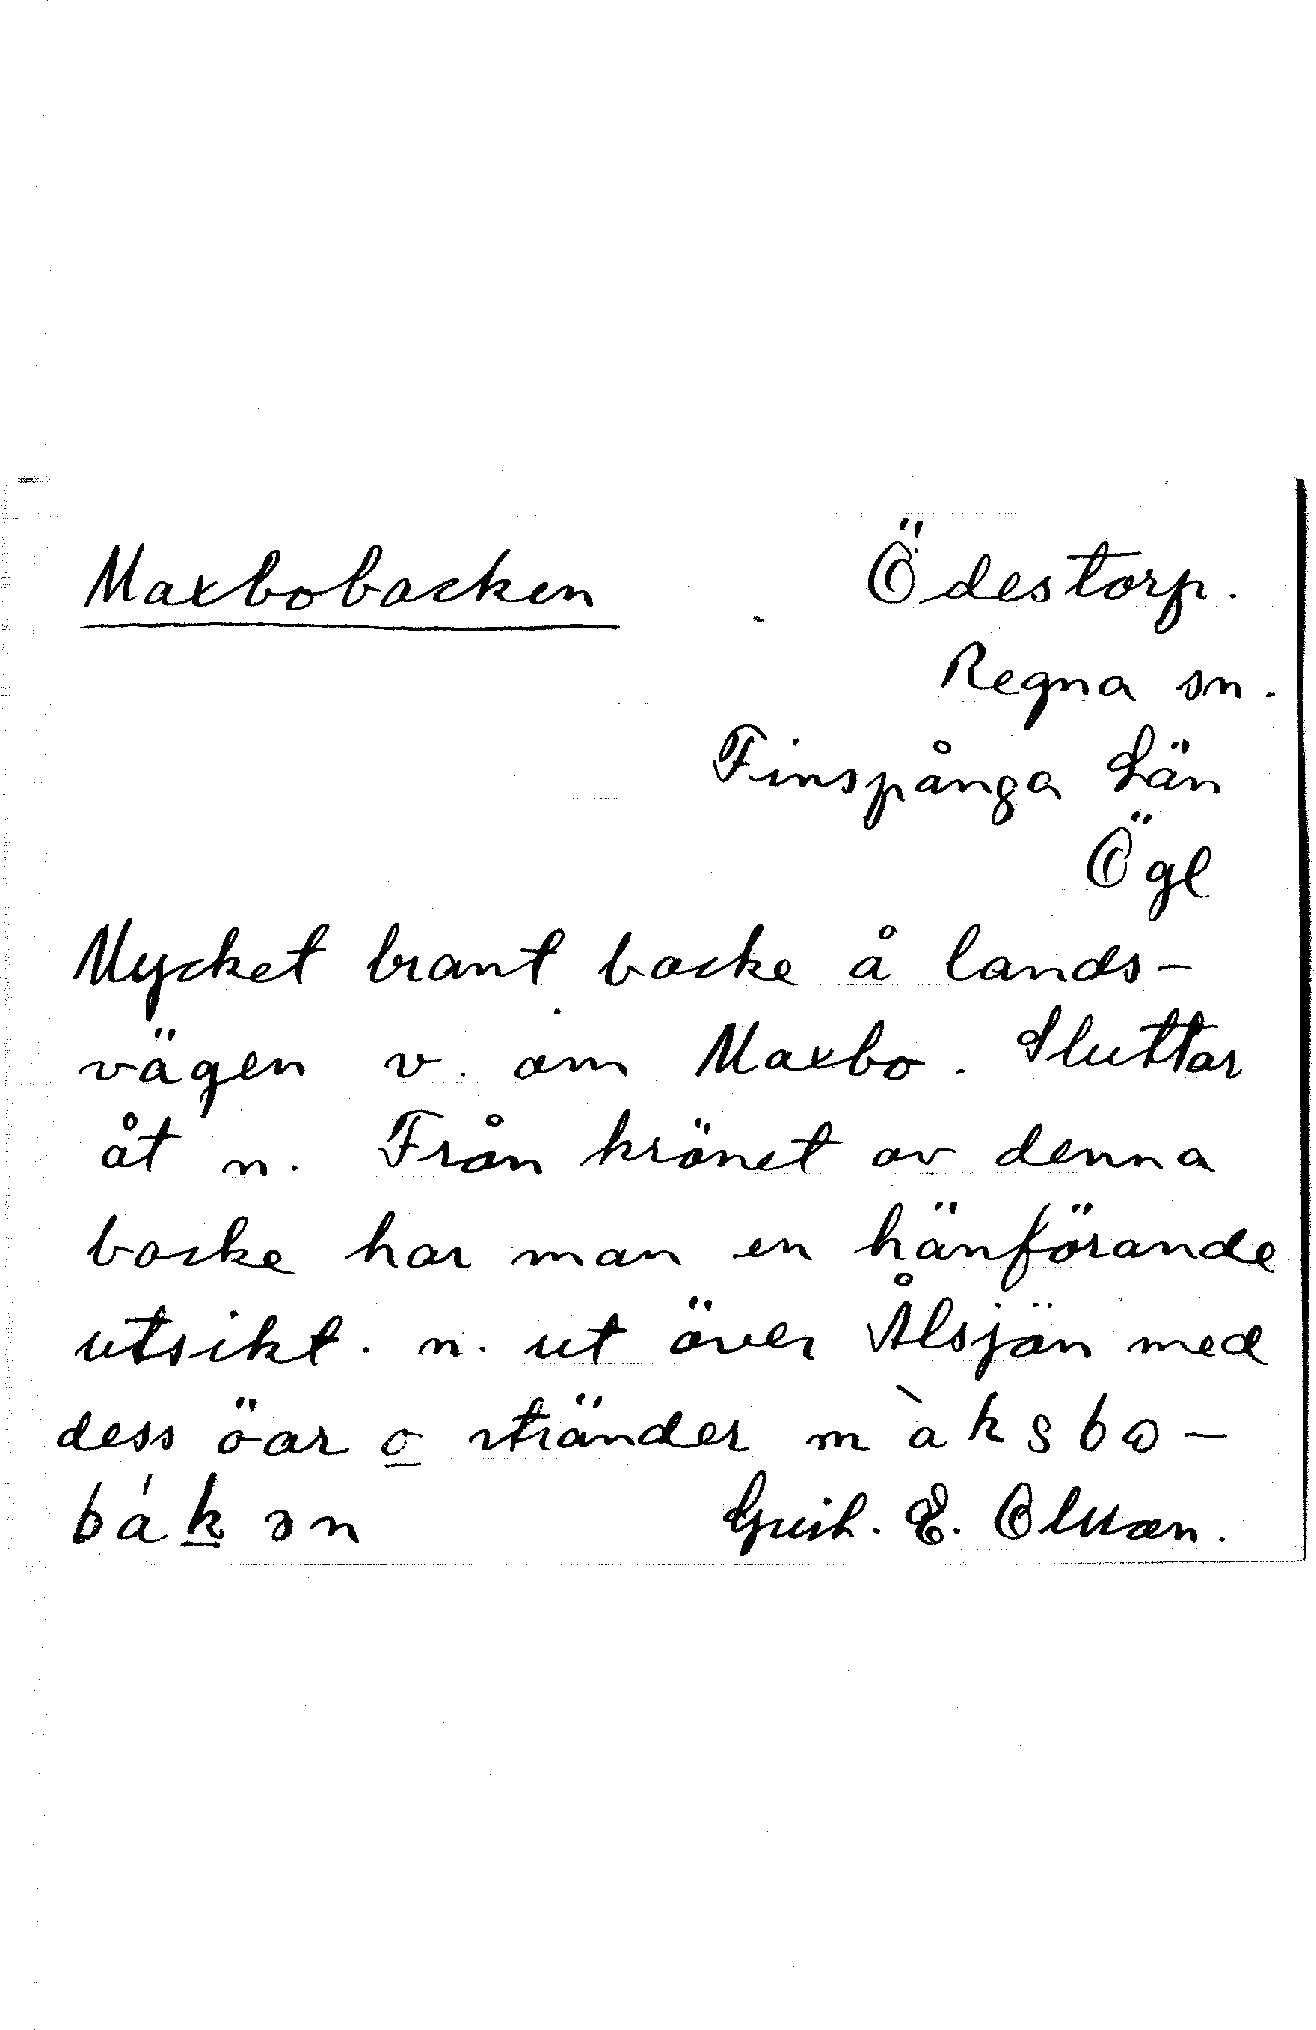 Maxbobacken
Ödestorp.
Regna sn.
Finspånga Län
Ögl
Mycket brant backe å lands-
vägen v. om Maxbo. Sluttar
åt n. Från krönet av denna
backe har man en hänförande
utsikt. n. ut över Ålsjön med
dess öar o stränder màksbo-
bákən
E. Olsson.